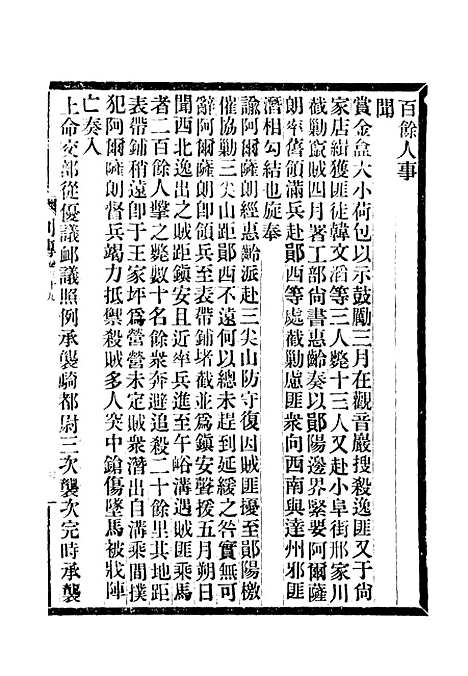 百餘人事
聞
賞金盒大小荷包以示鼓勵三月在觀音巖搜殺逸匪又于尙
家店緝獲匪徒韓文滔等三人斃十三人又赴小阜街邢家川
截勦竄賊四月署工部尙書惠齡奏以鄖陽邊界緊要阿爾薩
朗率舊領滿兵赴鄖西等處截勦慮匪衆向西南與達州邪匪
潛相勾結也旋奉
諭阿爾薩朗經惠齡派赴三尖山防守復因賊匪擾至鄖陽檄
催協勦三尖山距鄖西不遠何以總未趕到延緩之咎實無可
辭阿爾薩朗卽領兵至表帶鋪堵截並爲鎭安聲援五月朔日
聞西北逸出之賊距鎭安且近率兵進至午峪溝遇賊匪乘馬
者二百餘人擊之斃數十名餘衆奔避追殺二十餘里其地距
表帶鋪稍遠卽于王家坪爲營營未定賊衆潛出自溝乘間撲
犯阿爾薩朗督兵竭力抵禦殺賊多人突中鎗傷墜馬被戕陣
亡奏入
上命交部從優議卹議照例承襲騎都尉三次襲次完時承襲
列傳